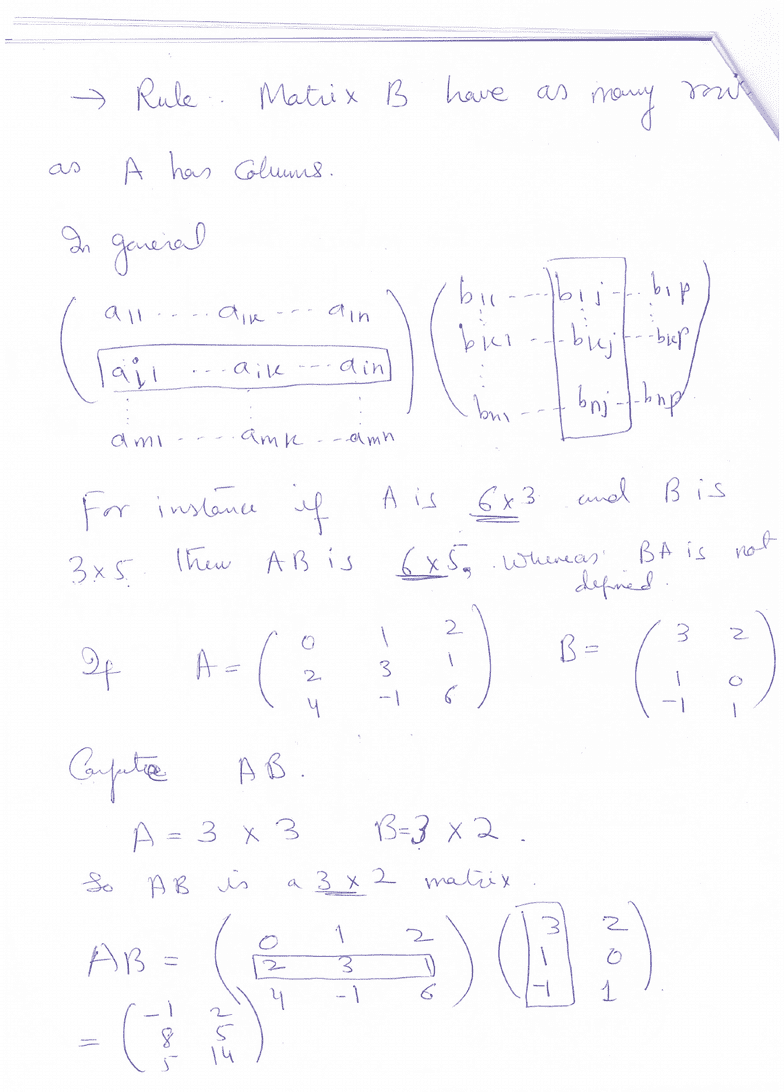 → Rule. Matrix B have as many rows
as A has Columns.
In general
a11 ---- a1k --- a1n
ai1 --- aik --- ain
am1 ---- amk -- amn
b11 ---- b1j --- b1p
bk1 -- bkj --- bkp
bn1 ---- bnj -- bnp
For instance if A is 6x3 and B is
3x5. Then AB is 6x5, whereas BA is not
defined.
If A = ( 0 1 2 B = ( 3 2
2 3 1 1 0
4 -1 6 ) -1 1 )
Compute AB.
A = 3 x 3 B=3 x 2.
So AB is a 3 x 2 matrix.
AB = ( 0 1 2 ( 3 2
2 3 1 1 0
4 -1 6 ) -1 1 ).
= ( -1 2
8 5
5 14 )